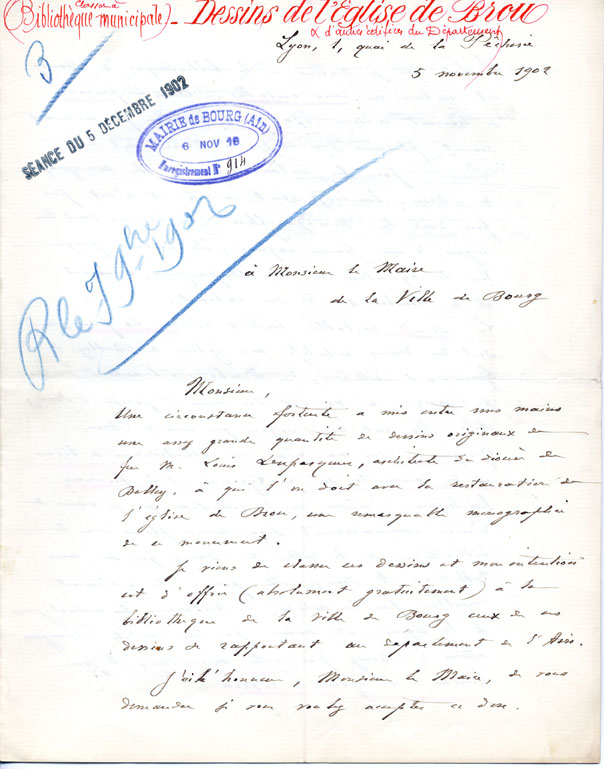 Classer à
(Bibliothèque municipale) - Dessins de l'Église de Brou
& d'autres édifices du Département)
Lyon, 1, quai de la Pêcherie
5 novembre 1902
3
SÉANCE DU 5 DÉCEMBRE 1902
MAIRIE de BOURG (AIN)
6 NOV 18
Enregistrement N° 914
R le 7 9bre 1902
à Monsieur le Maire
de la Ville de Bourg
Monsieur,
Une circonstance fortuite a mis entre mes mains
une assez grande quantité de dessins originaux de
feu M. Louis Dupasquier, architecte du diocèse de
Belley, à qui l'on doit avec la restauration de
l'église de Brou, une remarquable monographie
de ce monument.
Je viens de classer ces dessins et mon intention
est d'offrir (absolument gratuitement) à la
bibliothèque de la ville de Bourg ceux de ces
dessins se rapportant au département de l'Ain.
J'ai l'honneur, Monsieur le Maire, de vous
demander si vous voulez accepter ce don.